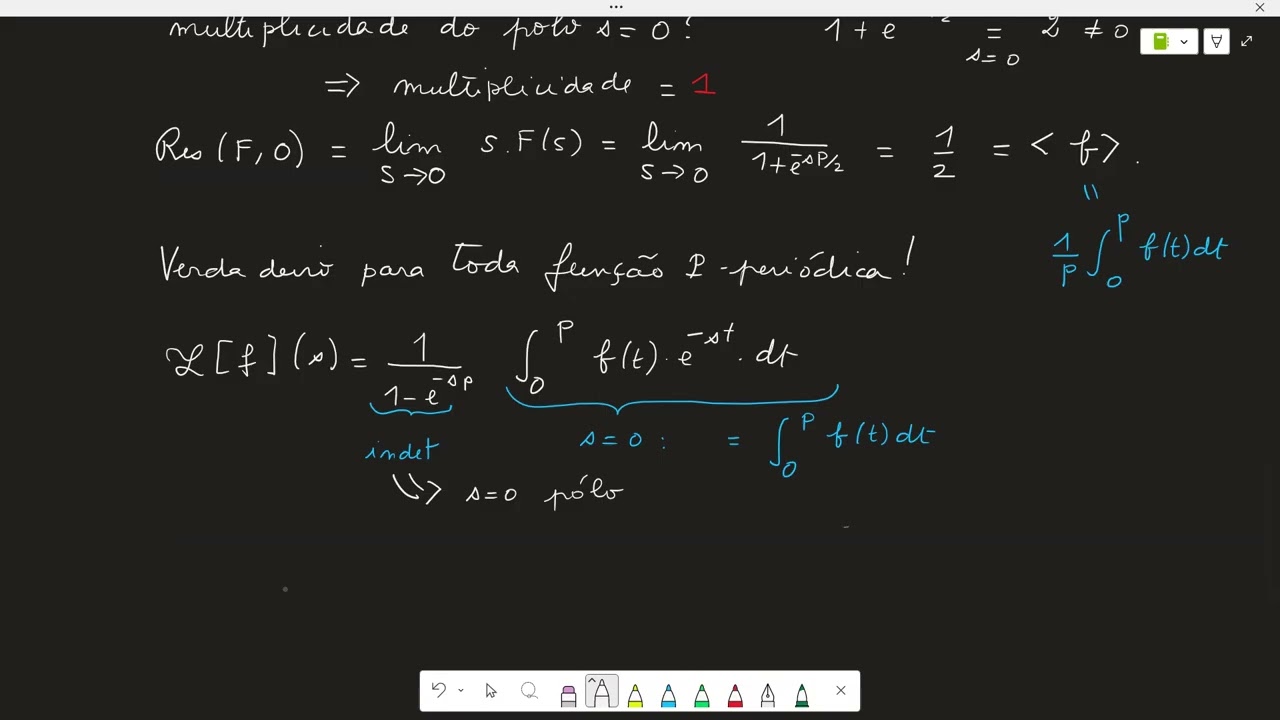 multiplicidade do polo s=0? 1+e = 2 ≠ 0
s=0
=> multiplicidade = 1
Res(F,0) = lim s→0 s.F(s) = lim s→0 1/(1+e^{-sP/2}) = 1/2 = <f>.
"
1/P ∫_0^P f(t)dt
Verdadeiro para toda função P-periódica!
ℒ[f](s) = 1/(1-e^{-sP}) ∫_0^P f(t).e^{-st}.dt
indet s=0: = ∫_0^P f(t)dt
↘> s=0 pólo